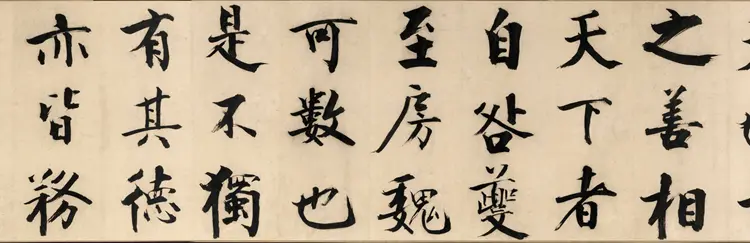 之善相
天下者
自咎夔
至房魏
可數也
是不獨
有其德
亦皆務